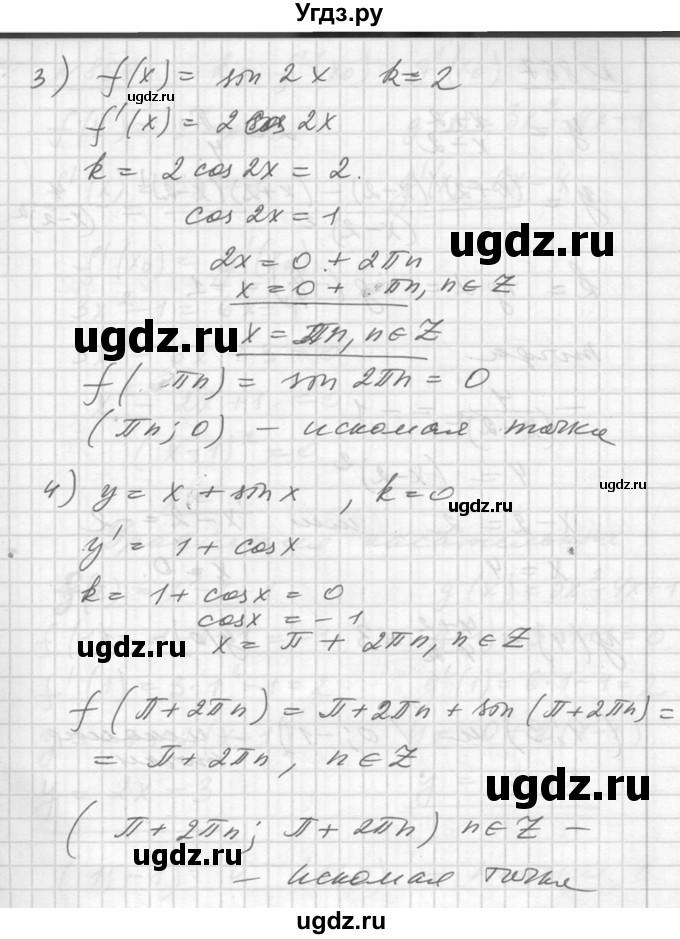 Угдз.ру
3) f(x) = sin 2x k = 2
ugdz.ru
f'(x) = 2 cos 2x
k = 2 cos 2x = 2.
cos 2x = 1
ugdz.ru
2x = 0 + 2πn
x = 0 + πn, n ∈ Z
ugdz.ru
x = πn, n ∈ Z
f(πn) = sin 2πn = 0
(πn; 0) – искомая точка
ugdz.ru
4) y = x + sin x , k = 0
ugdz.ru
y' = 1 + cos x
k = 1 + cos x = 0
cos x = -1
ugdz.ru
x = π + 2πn, n ∈ Z
f(π + 2πn) = π + 2πn + sin(π + 2πn) =
= π + 2πn, n ∈ Z
ugdz.ru
(π + 2πn; π + 2πn) n ∈ Z –
ugdz.ru
– искомая точка
ugdz.ru